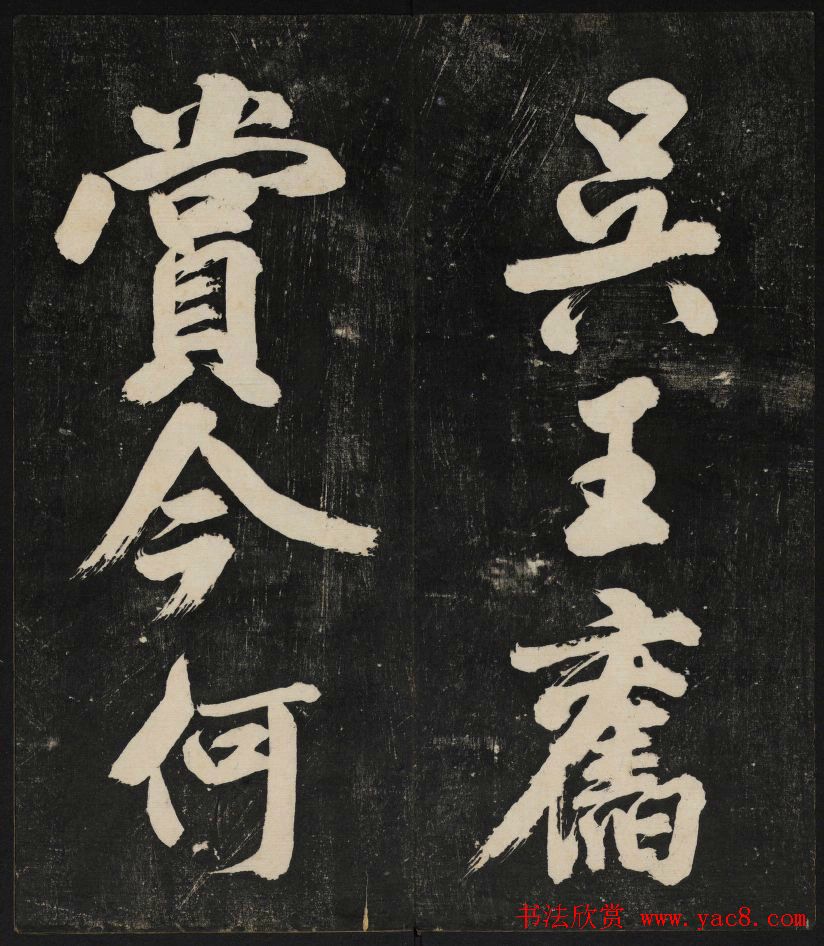 吴王舊
賞今何
书法欣赏 www.yac8.com